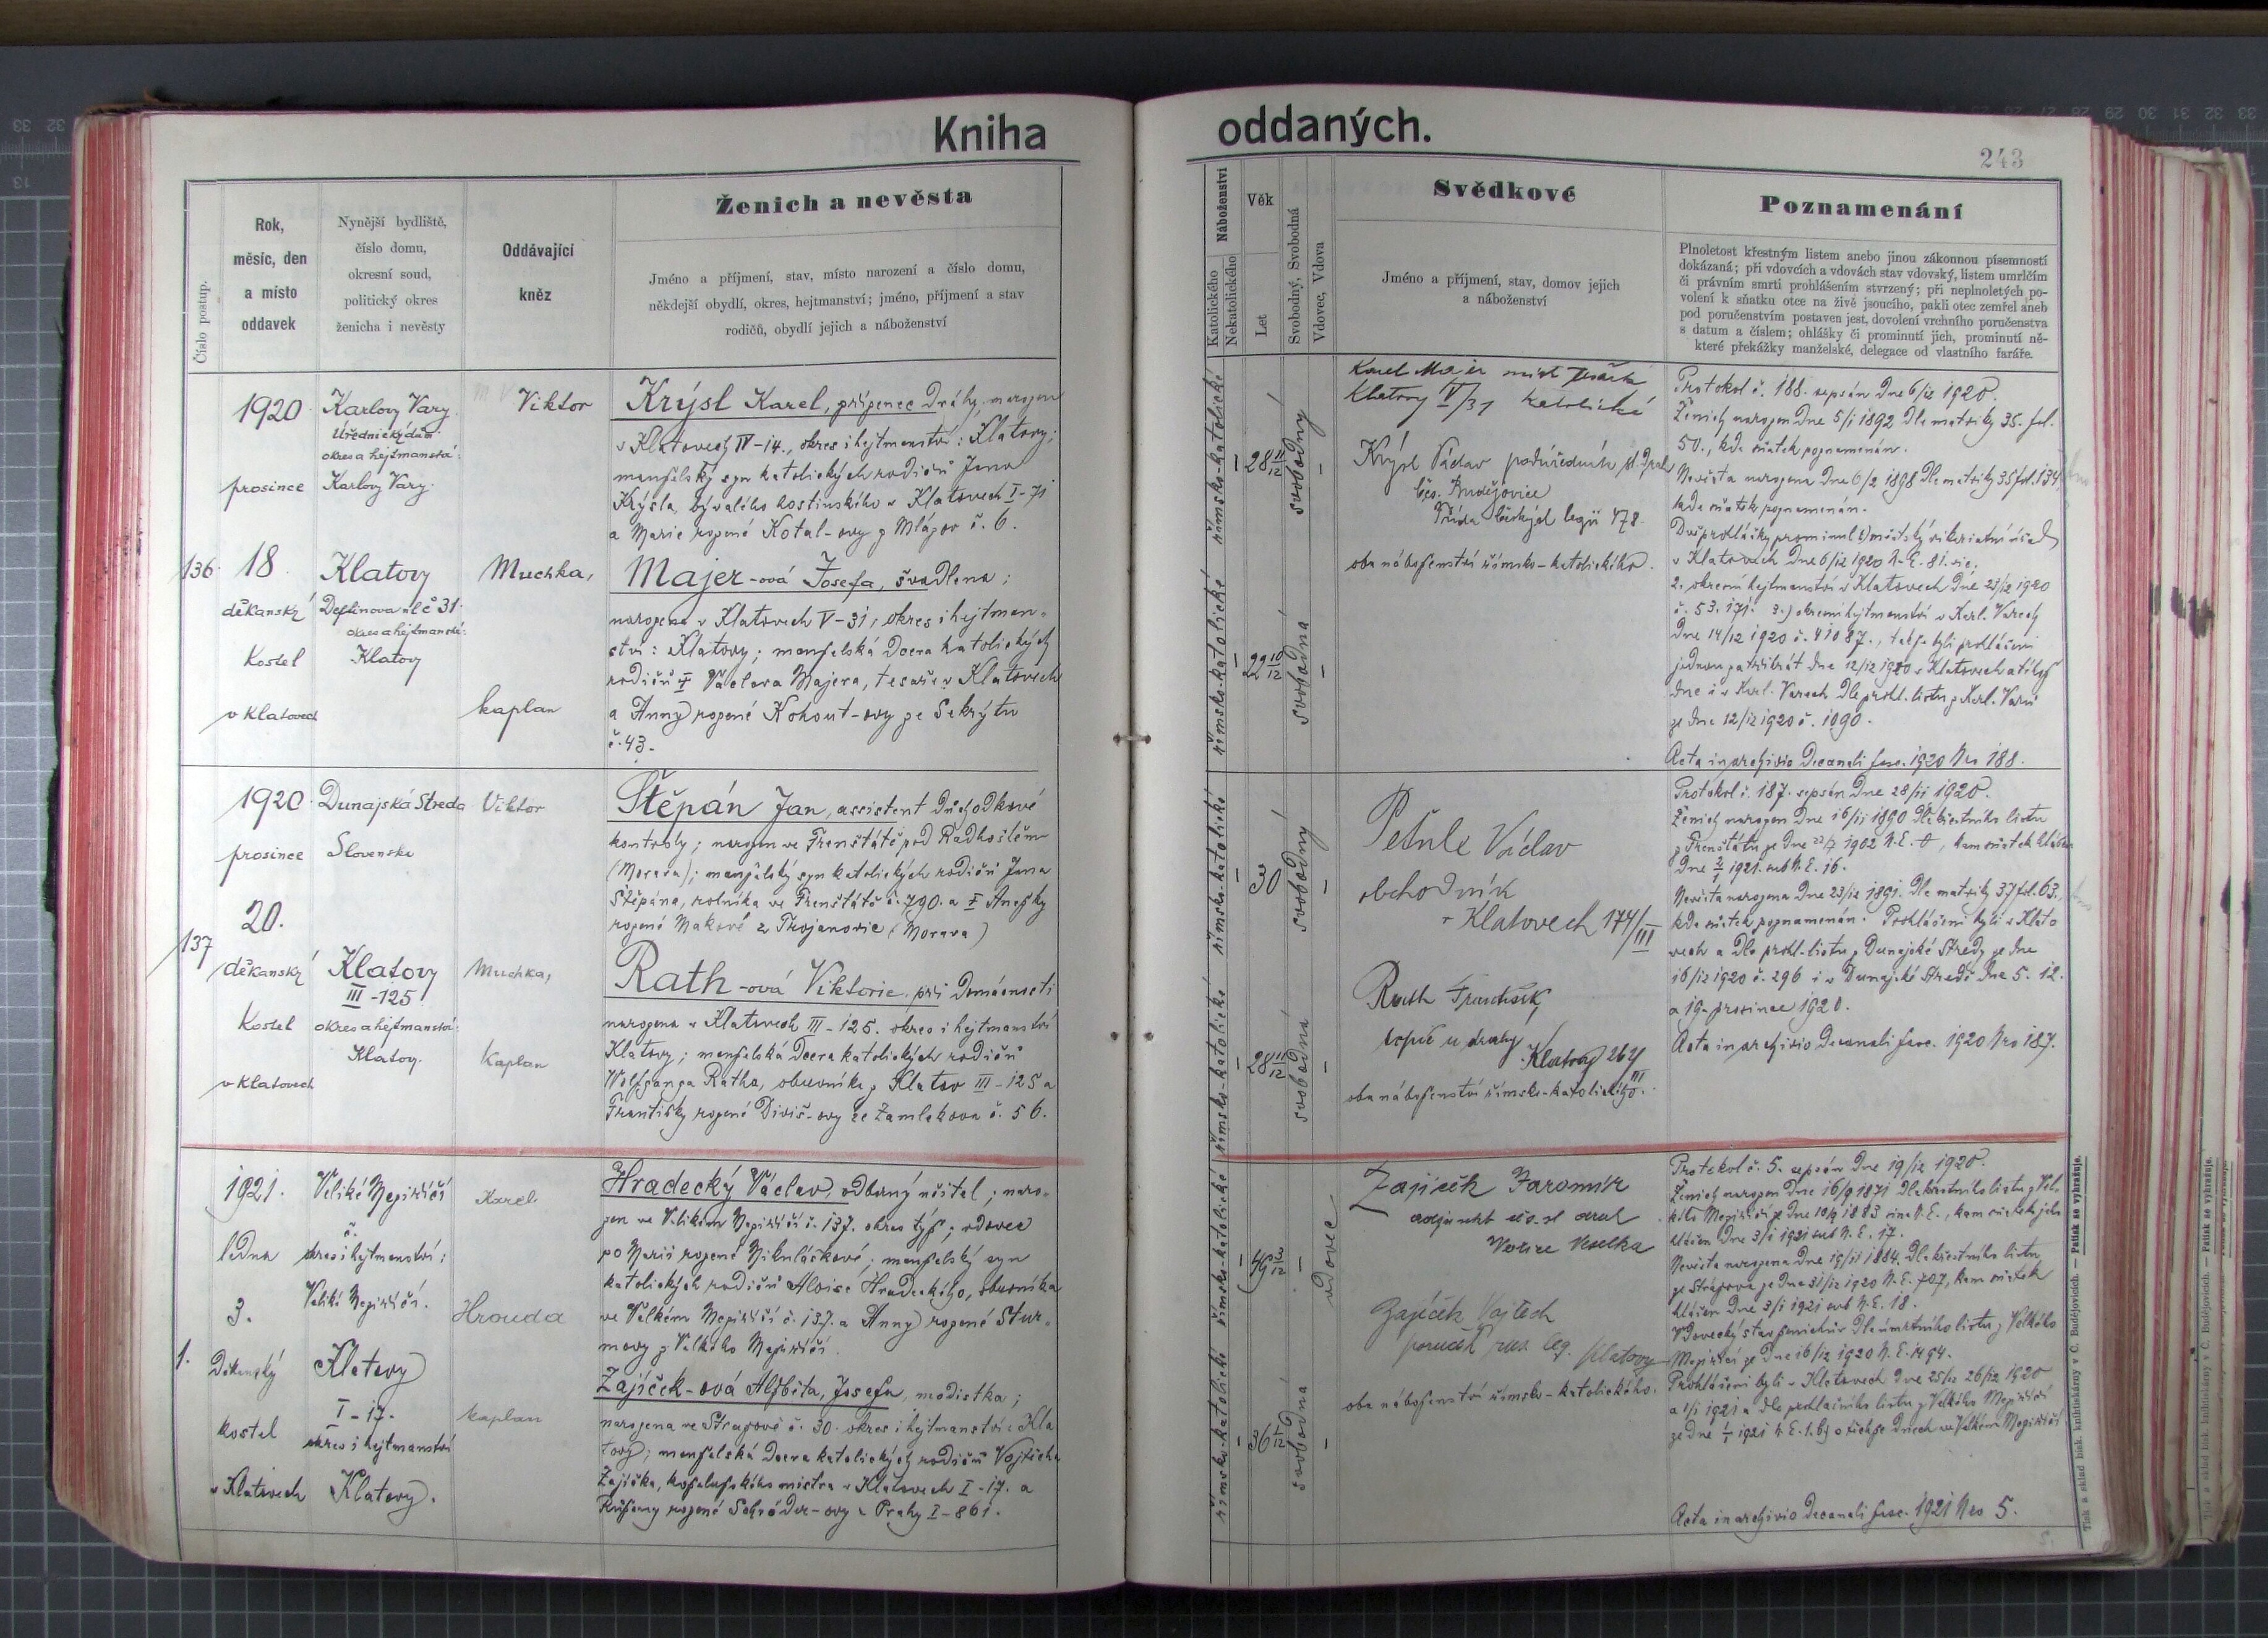 Kniha oddaných.
243
Číslo postup.
Rok,
měsíc, den
a místo
oddavek
Nynější bydliště,
číslo domu,
okresní soud,
politický okres
ženicha i nevěsty
Oddávající
kněz
Ženich a nevěsta
Jméno a příjmení, stav, místo narození a číslo domu,
někdejší obydlí, okres, hejtmanství; jméno, příjmení a stav
rodičů, obydlí jejich a náboženství
Náboženství
Katolického
Nekatolického
Věk
Let
Svobodný, Svobodná
Vdovec, Vdova
Svědkové
Jméno a příjmení, stav, domov jejich
a náboženství
Poznamenání
Plnoletost křestným listem anebo jinou zákonnou písemností
dokázaná; při vdovcích a vdovách stav vdovský, listem umrlčím
či právním smrti prohlášením stvrzený; při neplnoletých po-
volení k sňatku otce na živě jsoucího, pakli otec zemřel aneb
pod poručenstvím postaven jest, dovolení vrchního poručenstva
s datum a číslem; ohlášky či prominutí jich, prominutí ně-
které překážky manželské, delegace od vlastního faráře.
136
1920
prosince
18.
děkanský
kostel
v Klatovech
Karlovy Vary.
Úřednický dům
okres a hejtmanství:
Karlovy Vary.
Klatovy
č. 31.
okres a hejtmanství:
Klatovy
Viktor
Muchka,
kaplan
Krýsl Karel, přípenec dráhy, narozen
v Klatovech IV-14., okres i hejtmanství: Klatovy;
manželský syn katolických rodičů Jana
Krýsla, bývalého hostinského v Klatovech I-71
a Marie rozené Kotal-ovy z Mlázov č. 6.
Majer-ová Josefa, švadlena;
narozena v Klatovech V-31, okres i hejtman-
ství: Klatovy; manželská dcera katolických
rodičů † Václava Majera, tesaře v Klatovech
a Anny rozené Kohout-ovy ze Sekrýtu
č. 43.
římsko-katolické
28 11/12
svobodný
římsko-katolické
22 10/12
svobodná
Karel Majer mist tesařsk
Klatovy V/31 katolické
Krýsl Václav podúředník st. drah
Čes. Budějovice
Třída českých legií 478
oba náboženství římsko-katolického.
Protokol č. 188. sepsán dne 6/12 1920.
Ženich narozen dne 5/1 1892 dle matriky 35. fol.
50., kde sňatek poznamenán.
Nevěsta narozena dne 6/2 1898 dle matriky 35 fol. 134,
kde sňatek poznamenán.
Dvě prohlášky prominul 1) městský vikariátní úřad
v Klatovech dne 6/12 1920 N. E. 81. vic.
2. okresní hejtmanství v Klatovech dne 23/12 1920
č. 53.171. 3.) okresní hejtmanství v Karl. Varech
dne 14/12 1920 č. 41087., takže byli prohlášeni
jednou za třikrát dne 12/12 1920 v Klatovech a téhož
dne i v Karl. Varech dle prohl. listu z Karl. Varů
ze dne 12/12 1920 č. 1090.
Acta in archivio decanali fasc. 1920 Nro 188.
137
1920
prosince
20.
děkanský
kostel
v Klatovech
Dunajská Streda
Slovensko
Klatovy
III-125
okres a hejtmanství:
Klatovy.
Viktor
Muchka,
kaplan
Štěpán Jan, assistent důchodkové
kontroly; narozen ve Frenštátě pod Radhoštěm
(Morava); manželský syn katolických rodičů Jana
Štěpána, rolníka ve Frenštátě č. 790. a † Anežky
rozené Makové z Trojanovic (Morava)
Rath-ová Viktorie, při domácnosti
narozena v Klatovech III-125. okres i hejtmanství
Klatovy; manželská dcera katolických rodičů
Wolfganga Ratha, obuvníka z Klatov III-125 a
Františky rozené Diviš-ovy ze Zamlekova č. 56.
římsko-katolické
30
svobodný
římsko-katolické
28 11/12
svobodná
Petule Václav
obchodník
v Klatovech 174/III
Rath František
topič u dráhy
Klatovy 262/III
oba náboženství římsko-katolického.
Protokol č. 187. sepsán dne 28/11 1920.
Ženich narozen dne 16/11 1890 dle křestního listu
z Frenštátu ze dne 22/7 1902 N. E. , kam sňatek hlášen
dne 3/1 1921. sub N. E. 16.
Nevěsta narozena dne 23/12 1891. dle matriky 37 fol. 63.,
kde sňatek poznamenán. Prohlášeni byli v Klato
vech a dle prohl. listu z Dunajské Středy ze dne
16/12 1920 č. 296 i v Dunajské Středě dne 5. 12.
a 19. prosince 1920.
Acta in archivio decanali fasc. 1920 Nro 187.
1.
1921.
ledna
3.
Děkanský
kostel
v Klatovech
Veliké Meziříčí
č.
okres i hejtmanství:
Veliké Meziříčí.
Klatovy
I-17.
okres i hejtmanství
Klatovy.
Karel
Hrouda
kaplan
Hradecký Václav, odborný učitel; naro-
zen ve Velikém Meziříčí č. 137. okres týž; vdovec
po Marii rozené Mikuláčkové; manželský syn
katolických rodičů Aloise Hradeckého, obuvníka
ve Velkém Meziříčí č. 137. a Anny rozené Stur-
movy z Velkého Meziříčí.
Zajíček-ová Alžběta, Josefa, modistka;
narozena ve Strážově č. 30. okres i hejtmanství: Kla
tovy; manželská dcera katolických rodičů Vojtěcha
Zajíčka, koželužského mistra v Klatovech I-17. a
Růženy rozené Schröder-ovy z Prahy I-861.
římsko-katolické
49 3/12
vdovec
římsko-katolické
36 1/12
svobodná
Zajíček Jaromír
adjunkt čs. st drah
Zajíček Vojtěch
poručík rus. leg. Klatovy
oba náboženství římsko-katolického.
Protokol č. 5. sepsán dne 19/12 1920.
Ženich narozen dne 16/9 1871 dle křestního listu z Vel-
kého Meziříčí ze dne 10/9 1883 sine N. E., kam sňatek jeho
hlášen dne 3/1 1921 sub N. E. 17.
Nevěsta narozena dne 19/11 1884. dle křestního listu
ze Strážova ze dne 31/12 1920 N. E. 707, kam sňatek
hlášen dne 3/1 1921 sub N. E. 18.
Vdovecký stav ženichův dle úmrtního listu z Velkého
Meziříčí ze dne 16/12 1920 N. E. 1494.
Prohlášeni byli v Klatovech dne 25/12 26/12 1920
a 1/1 1921 a dle prohlašního listu z Velkého Meziříčí
ze dne 1/1 1921 v týchže dnech ve Velkém Meziříčí
Acta in archivio decanali fasc. 1921 Nro 5.
Tisk a sklad bisk. knihtiskárny v Č. Budějovicích. — Patisk se vyhražuje.